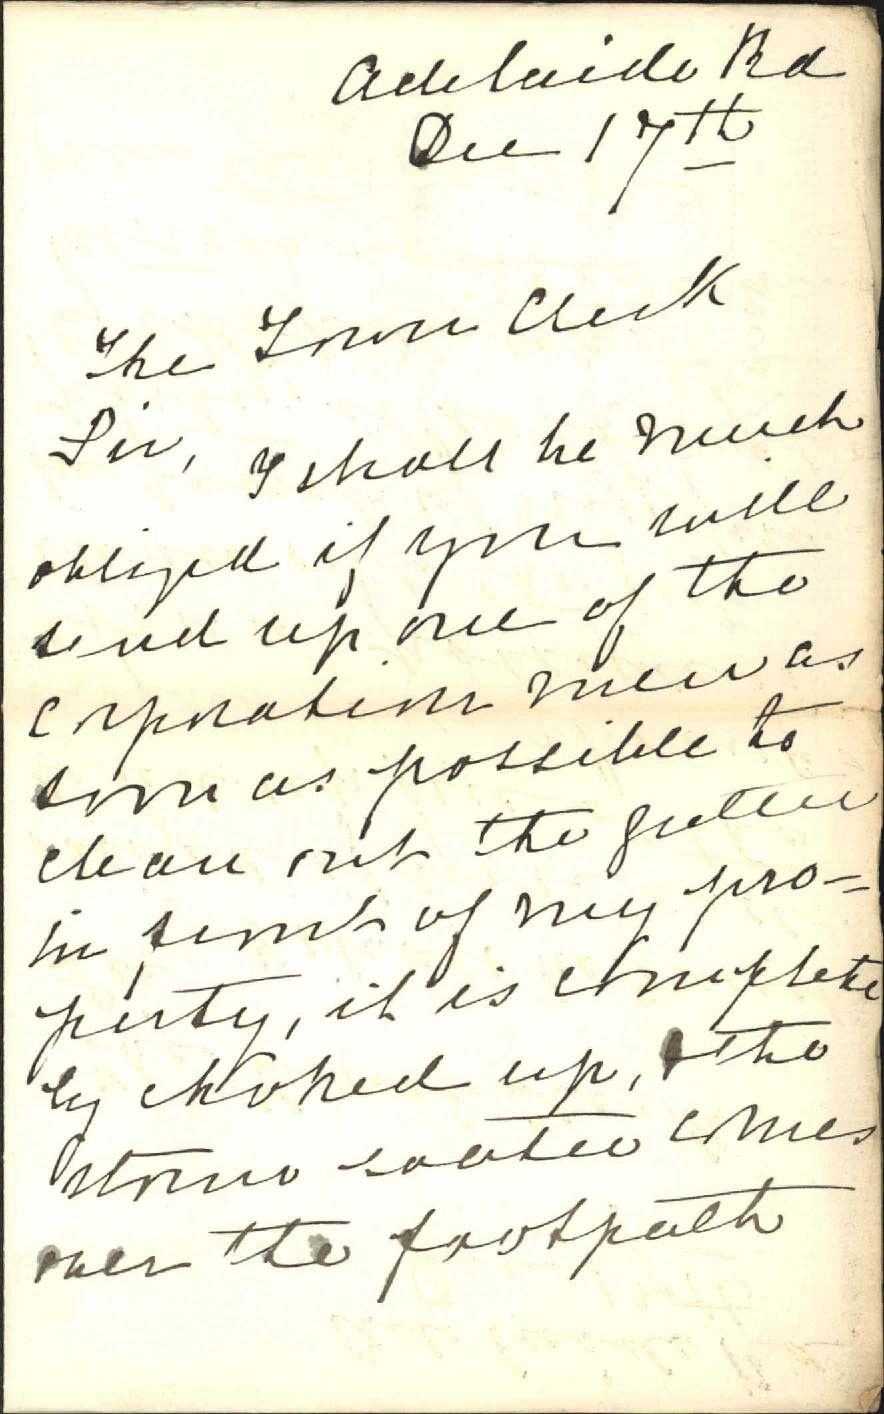 Adelaide Rd
Dec 17th
The Town Clerk
Sir, I shall be much
obliged if you will
send up one of the
corporation men as
soon as possible to
clean out the gutter
in front of my pro-
perty, it is complete
ly choked up, & the
storm water comes
over the footpath